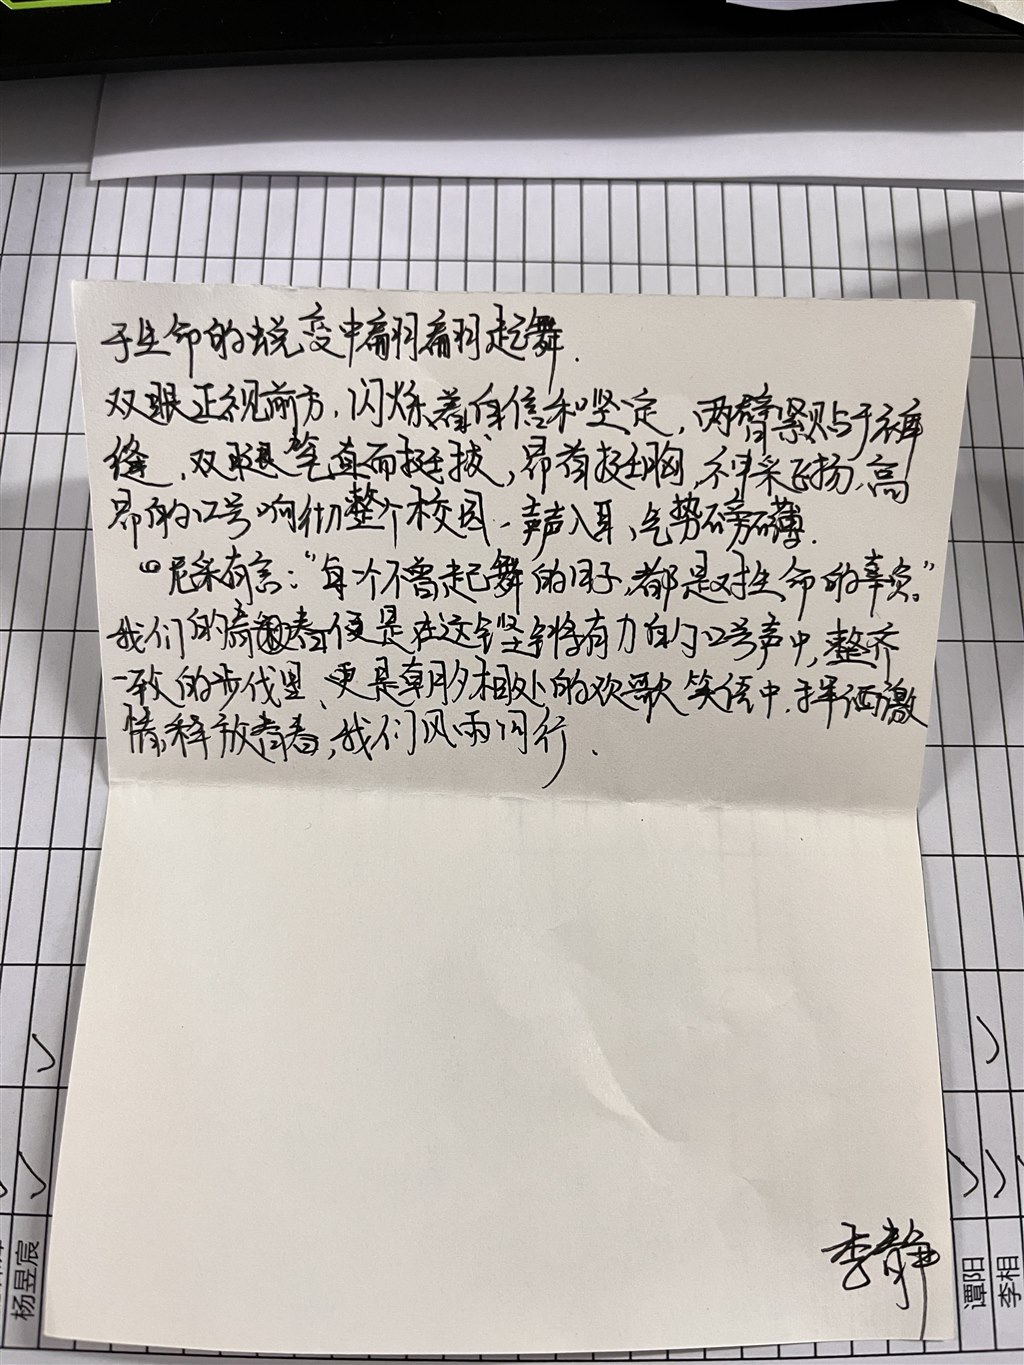 于生命的蜕变中翩翩起舞.
双眼正视前方,闪烁着自信和坚定,两臂紧贴于裤
缝,双腿笔直而挺拔,昂首挺胸,神采飞扬,高
昂的口号响彻整个校园,声声入耳,气势磅礴.
“尼采有言:“每个不曾起舞的日子,都是对生命的辜负。”
我们的青春便是在这铿锵有力的口号声中,整齐
一致的步伐里、更是朝夕相处的欢歌笑语中.挥洒激
情,释放青春,我们风雨同行.
李静
杨昱宸
谭阳
李相